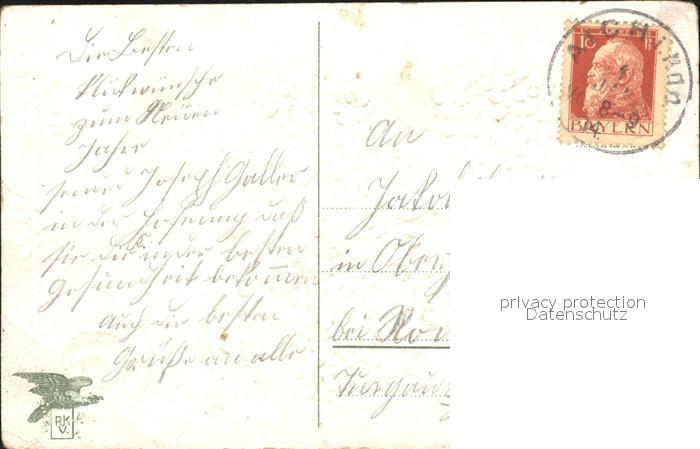 Die Besten
Glückwünsche
zum Neuen
Jahre
Joseph Galler
in der Hofnung daß
sie in der besten
Gesundheit bekommen
Auch die besten
Grüße an alle
An
Jakob
in Ober
bei Ro
Turgau
10 Pf
BAYERN
8-9
RK
V.
privacy protection
Datenschutz